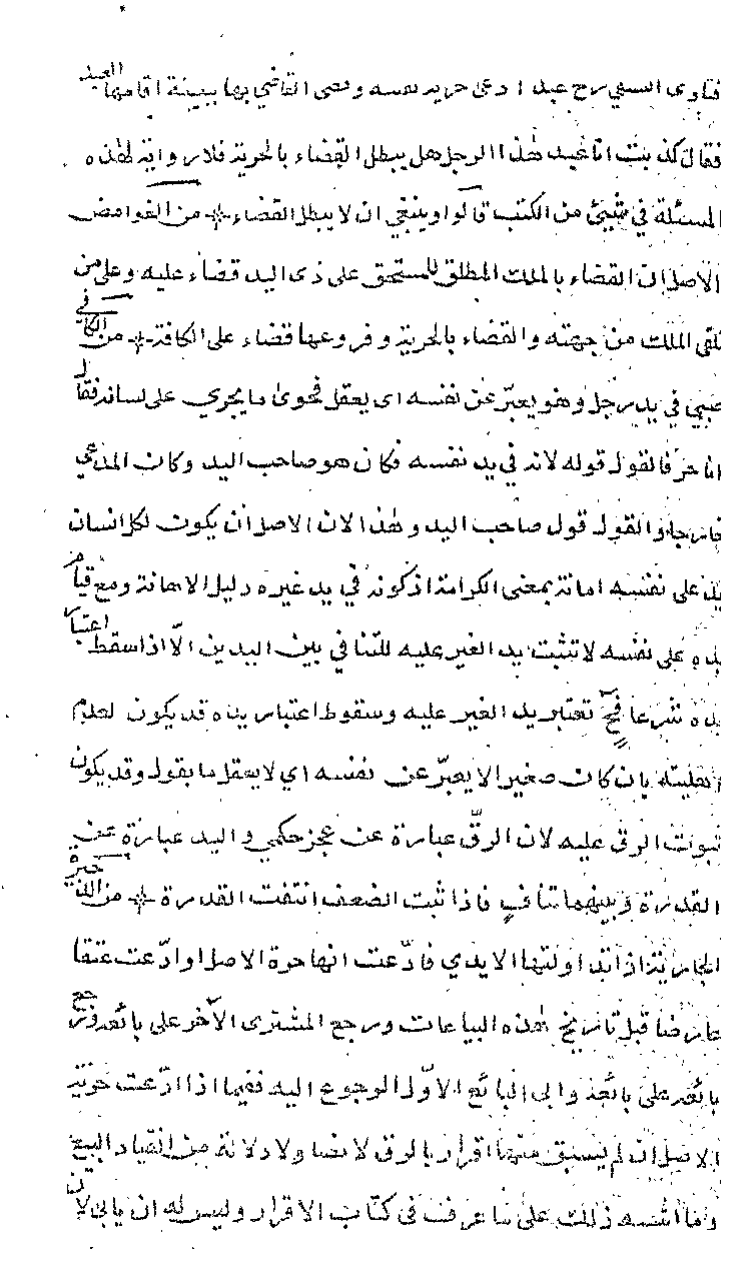 فتاوى النسفي رح عبد ادعى حرية نفسه وقضى القاضي بها ببينة اقامها العبد
فقال كذبت انا عبد هذا الرجل هل يبطل القضاء بالحرية فلا رواية لهذه
المسئلة في شيئ من الكتب قالوا وينبغي ان لا يبطل القضاء من الغوامض
الاصل ان القضاء بالملك المطلق للمستحق على ذى اليد قضاء عليه وعلى من
تلقى الملك من جهته والقضاء بالحرية وفروعها قضاء على الكافة من الكافي
صبي في يد رجل وهو يعبّر عن نفسه اى يعقل فحوى ما يجري على لسانه فقال
انا حر فالقول قوله لانه في يد نفسه فكان هو صاحب اليد وكان المدعي
خارجا والقول قول صاحب اليد وهذا لان الاصل ان يكون لكل انسان
يد على نفسه امانة بمعنى الكرامة اذ كونه في يد غيره دليل الاهانة ومع قيام
يده على نفسه لا تثبت يد الغير عليه للتنافي بين اليدين الّا اذا سقط اعتبار
يده شرعا فح تعتبر يد الغير عليه وسقوط اعتبار يده قد يكون لعدم
اهليته بان كان صغيرا لا يعبّر عن نفسه اي لا يعقل ما يقول وقد يكون
ثبوت الرق عليه لان الرقّ عبارة عن عجز حكمي واليد عبارة عن
القدرة وبينهما تنافٍ فاذا ثبت الضعف انتفت القدرة من الذخيرة
الجارية اذا تداولتها الايدي فادّعت انها حرة الاصل او ادّعت عتقا
عارضا قبل تاريخ هذه البياعات ورجع المشترى الآخر على بائعه فرجع
بائعه على بائعه وابى البائع الاوّل الرجوع اليه ففيما اذا ادّعت حرية
الاصل ان لم يسبق منها اقرار بالرق لا نصا ولا دلالة من انقياد البيع
وما اشبه ذلك على ما عرف في كتاب الاقرار وليس له ان يابى لان